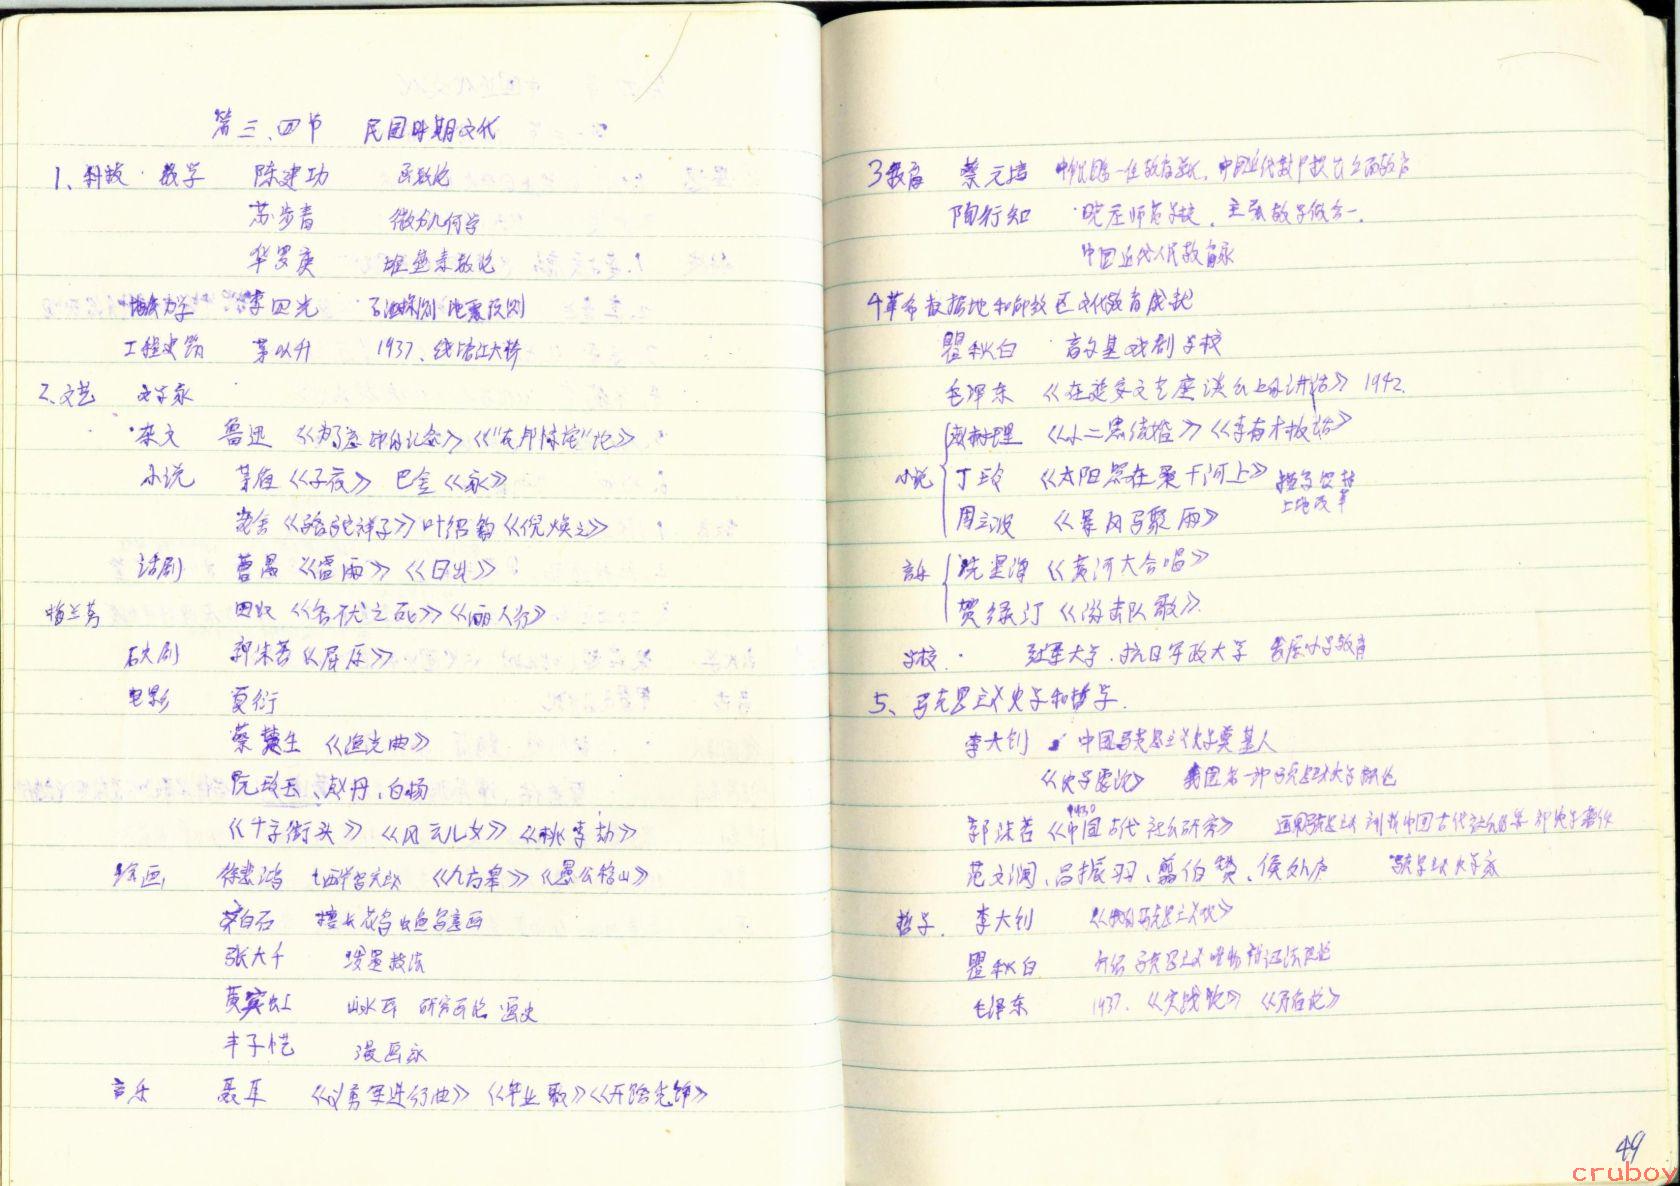 第三、四节 民国时期文化
1、科技 · 数学 陈建功 函数论
苏步青 微分几何学
华罗庚 堆垒素数论
地质力学 李四光 石油探测 地震预测
工程建筑 茅以升 1937、钱塘江大桥
2、文艺 文学家
杂文 鲁迅 《为了忘却的纪念》《“友邦惊诧”论》
小说 茅盾《子夜》 巴金《家》
老舍《骆驼祥子》叶绍钧《倪焕之》
话剧 曹禺《雷雨》《日出》
梅兰芳 田汉《名优之死》《丽人行》
历史剧 郭沫若《屈原》
电影 夏衍
蔡楚生 《渔光曲》
阮玲玉、赵丹、白杨
《十字街头》《风云儿女》《桃李劫》
绘画 徐悲鸿 《九方皋》《愚公移山》
齐白石 擅长花鸟虫鱼写意画
张大千 泼墨技法
黄宾虹 山水画 研究画论 画史
丰子恺 漫画家
音乐 聂耳 《义勇军进行曲》《毕业歌》《开路先锋》
3教育 蔡元培
陶行知 晓庄师范学校、主张教学做合一、
中国近代人民教育家
4革命根据地和解放区文化教育成就
瞿秋白 高尔基戏剧学校
毛泽东 《在延安文艺座谈会上的讲话》 1942.
赵树理 《小二黑结婚》《李有才板话》
小说 丁玲 《太阳照在桑干河上》
土地改革
周立波 《暴风骤雨》
音乐 冼星海 《黄河大合唱》
贺绿汀 《游击队歌》
学校 · 红军大学、抗日军政大学
5、马克思主义史学和哲学.
李大钊 中国马克思主义史学奠基人
《史学要论》 我国第一部马克思主义史学概论
1930
郭沫若《中国古代社会研究》
范文澜、吕振羽、翦伯赞、侯外庐 马克思主义史学家
哲学. 李大钊 《我的马克思主义观》
瞿秋白 介绍马克思主义唯物辩证法理论
毛泽东 1937.《实践论》《矛盾论》
49
cruboy